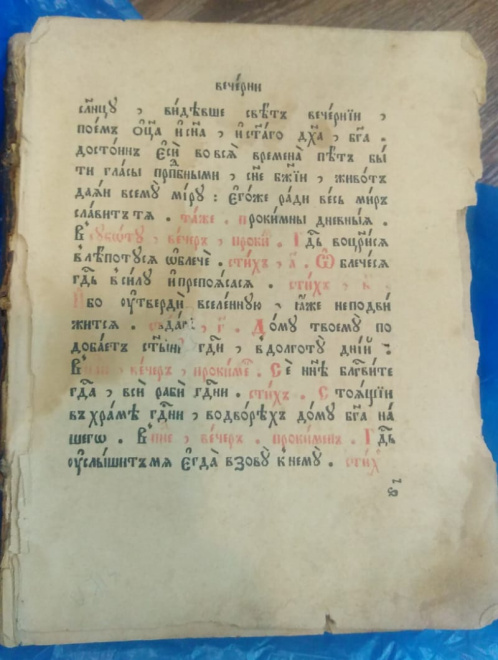 вече́рни
сл҃нцу , ви́дѣвше свѣ́тъ вече́рнїи ,
пое́мъ ѻ҆ц҃а̀ и҆ сн҃а , и҆ ст҃а́го дх҃а , бг҃а .
досто́инъ є҆сѝ во всѧ̀ времена̀ пѣ́тъ бы́
ти гла́сы прпⷣбными , сн҃е бж҃їи , живо́тъ
даѧ́и всему̀ мі́ру : є҆го́же ра́ди ве́сь ми́ръ
сла́витъ тѧ . та́же . прокимны дневны́ѧ .
В су́ботꙋ , ве́черъ , проки́ . Гдⷭ҇ь воцр҃и́сѧ
в лѣ́потꙋсѧ ѡ҆блечѐ . сти́хъ , а҃ . Ѿ блече́сѧ
гдⷭ҇ь в си́лꙋ и҆ препоѧ́сасѧ . сти́хъ ,
И́бо ᲂу҆твердѝ вселе́ннꙋю , ꙗ҆́же не подви́
жится . г҃ . До́мꙋ твоемꙋ̀ по
доба́етъ гдⷭ҇и , в долготꙋ̀ дні́й
В ве́черъ , проки́ме . Сѐ нн҃ѣ блгⷭ҇ви́те
гдⷭ҇а , всѝ рабѝ гдⷭ҇ни . сти́хъ . Стоѧ́щїи
въ хра́мѣ гдⷭ҇ни , во дво́рѣхъ до́мꙋ бг҃а на́
шегѡ . В ве́черъ . проки́менъ . Гдⷭ҇ь
ᲂу҆слы́шитъ мѧ є҆гда̀ взовꙋ̀ к немꙋ̀ . сти́х